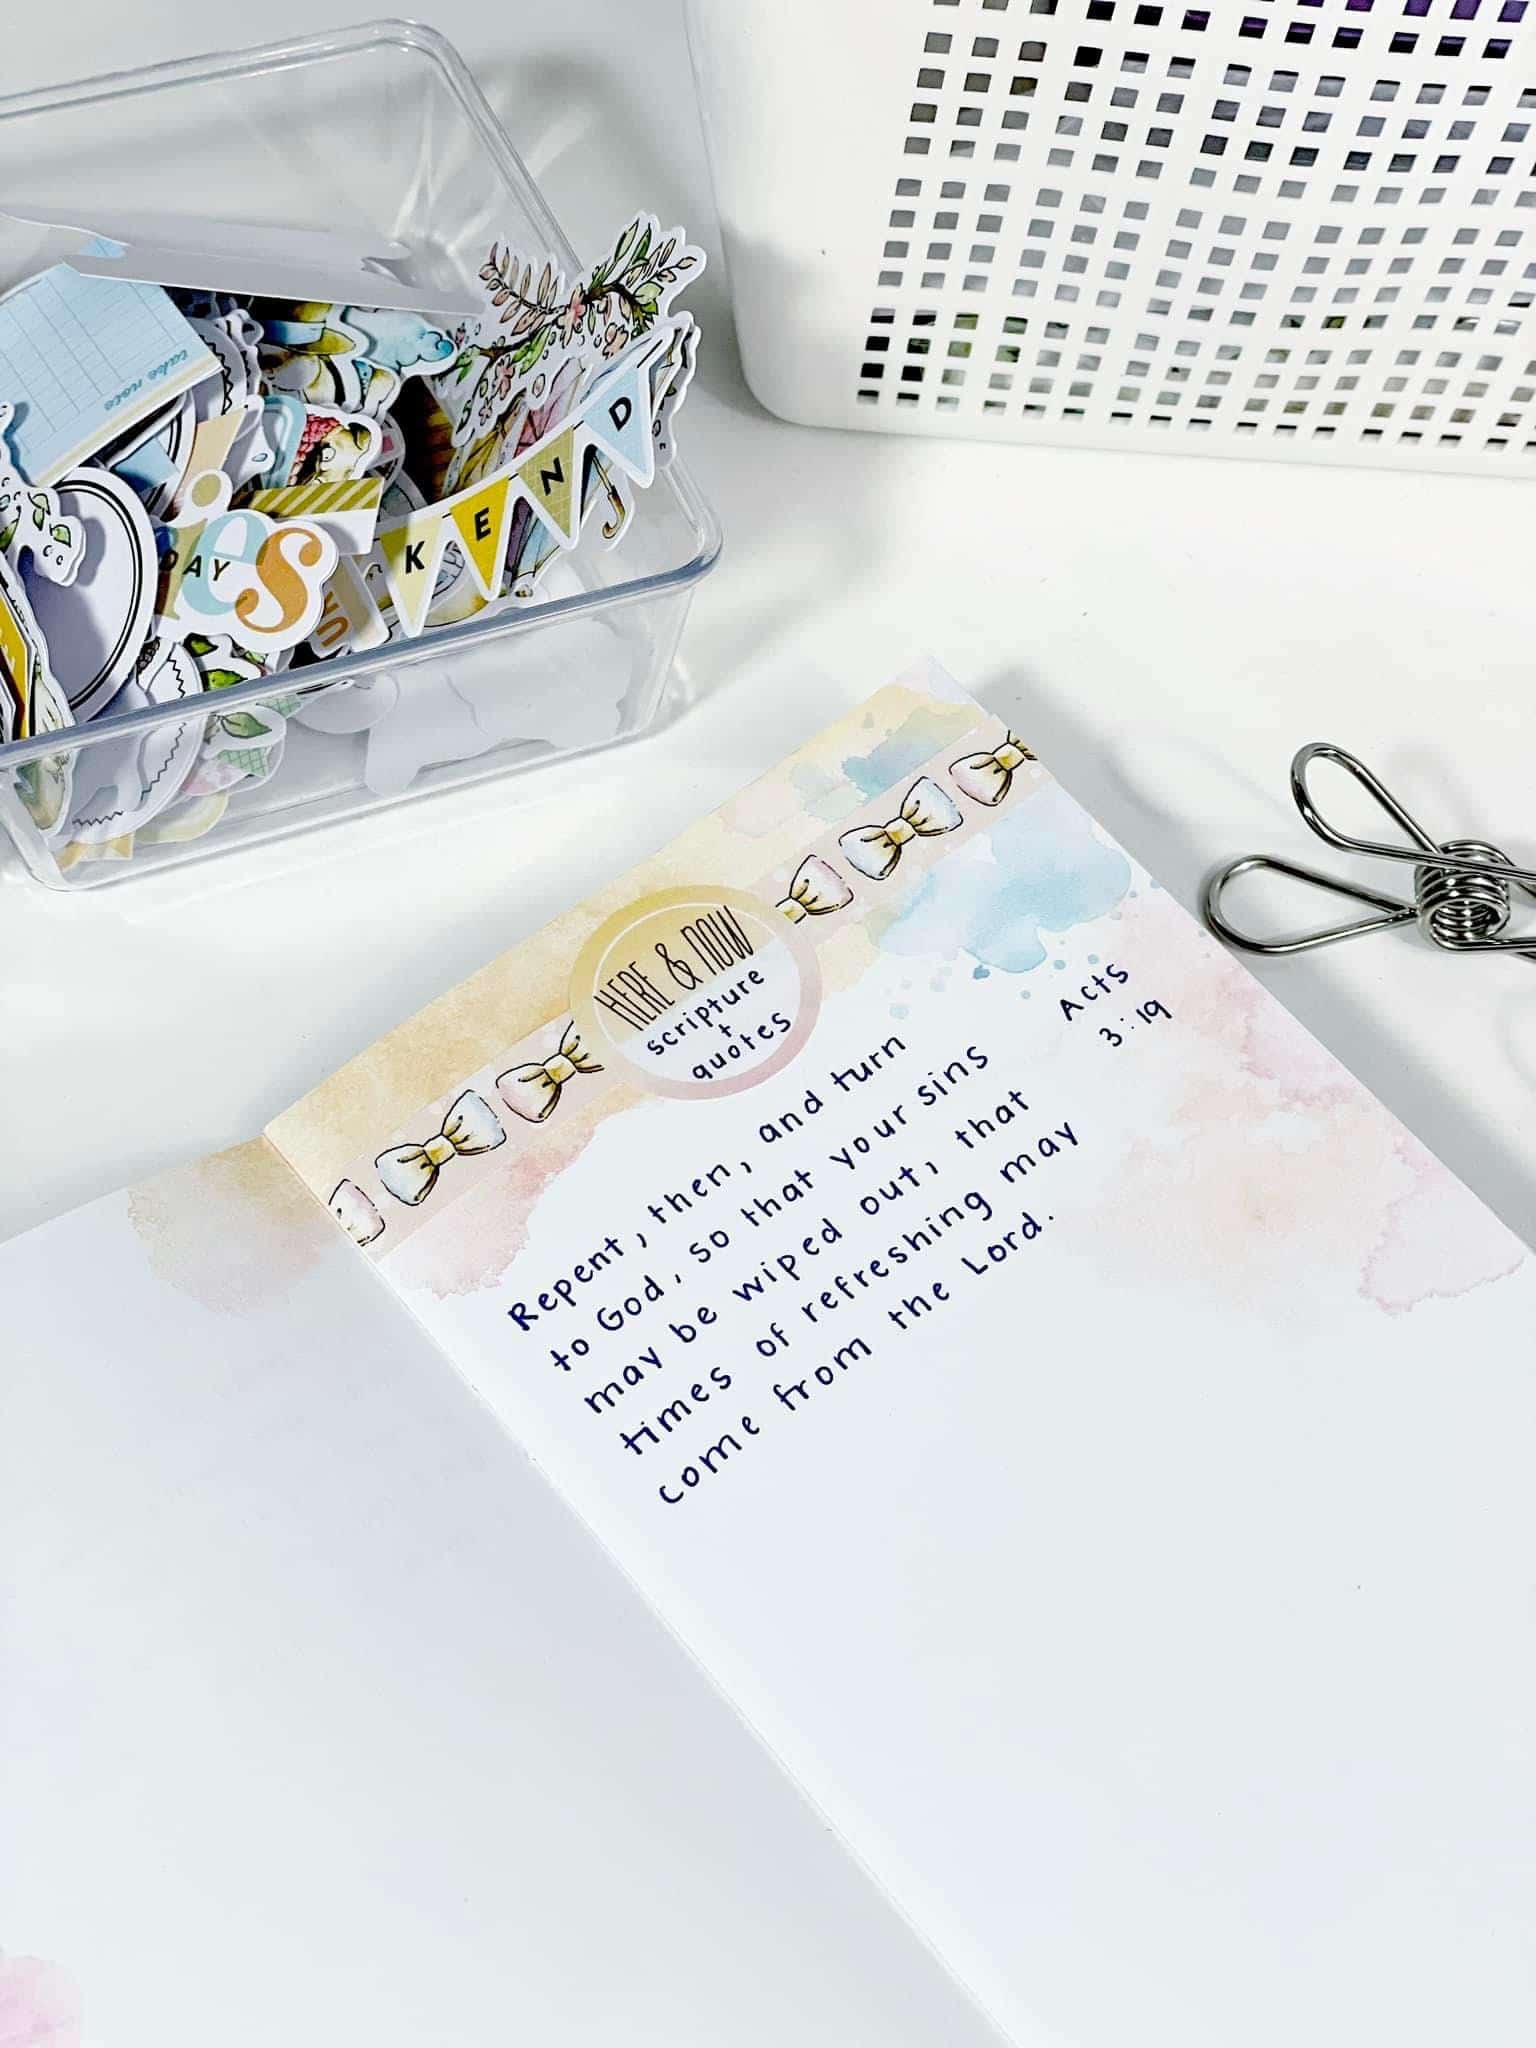 take note
ies
DAY
KEND
HERE & NOW
scripture
+
quotes
Acts
3:19
Repent, then, and turn
to God, so that your sins
may be wiped out, that
times of refreshing may
come from the Lord.